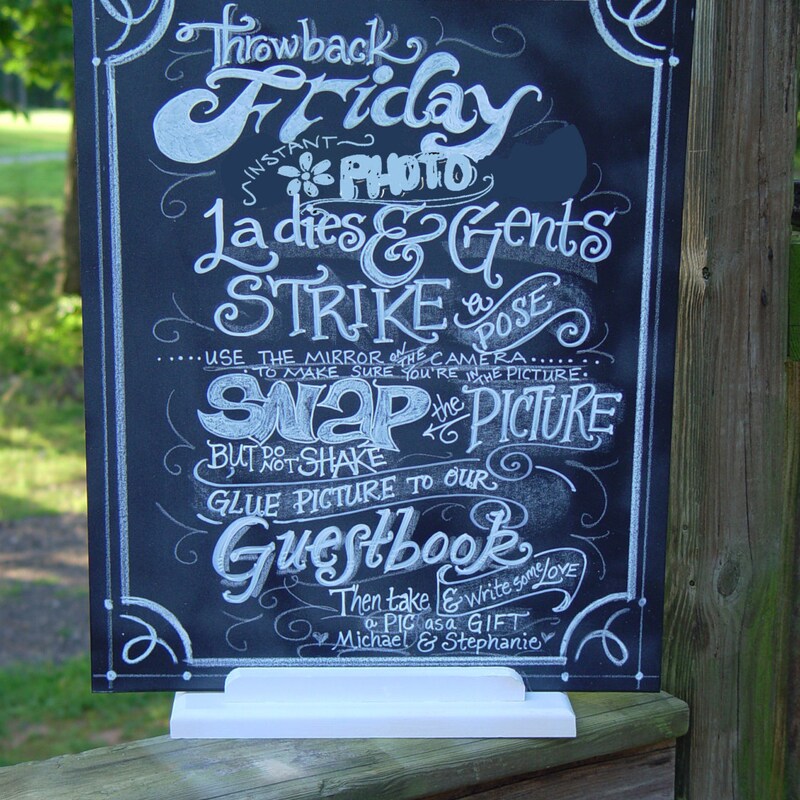 Throwback
Friday
INSTANT
PHOTO
Ladies & Gents
STRIKE a POSE
USE THE MIRROR ON THE CAMERA
TO MAKE SURE YOU'RE IN THE PICTURE.
SNAP the PICTURE
BUT DO NOT SHAKE
GLUE PICTURE TO OUR
Guestbook
& write some LOVE
Then take
a PIC as a GIFT
Michael & Stephanie